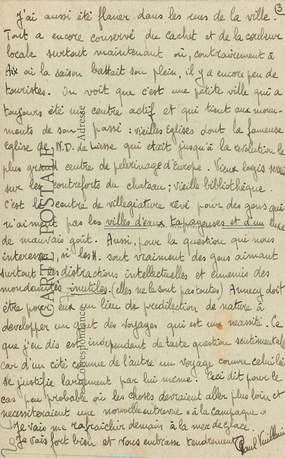 3
J'ai aussi été flaner dans les rues de la ville.
Tout a encore conservé du cachet et de la couleur
locale surtout maintenant où, contrairement à
Aix où la saison battait son plein, il y a encore peu de
touristes. On voit que c'est une petite ville qui a
toujours été un centre actif et qui tient aux monu-
ments de son passé : vieilles églises dont la fameuse
église de N.D. de Liesse qui était jusqu'à la révolution le
plus grand centre de pélerinage d'Europe. Vieux logis
sur les contreforts du chateau ; vieille bibliothèque.
C'est le centre de villégiature rêvé pour des gens qui
n'aiment pas les villes d'eaux tapageuses et d'un luxe
de mauvais goût. Aussi, pour la question qui nous
intéresse, si les M. sont vraiment des gens aimant
surtout les distractions intellectuelles et ennemis des
mondanités inutiles (elles ne le sont pas toutes) Annecy doit
être pour eux un lieu de prédilection de nature à
développer un goût des voyages qui est une Ce
que j'en dis est indépendant de toute question sentimentale
car d'un côté comme de l'autre un voyage comme celui-là
se justifie largement par lui même. Ceci dit pour le
cas peu probable où les choses devraient aller plus loin et
nécessiteraient une nouvelle entrevue "à la campagne"
Je vais me rafraichir demain à la mer de glace.
Je vais fort bien et vous embrasse tendrement
Paul
CARTE POSTALE
Correspondance
Adresse